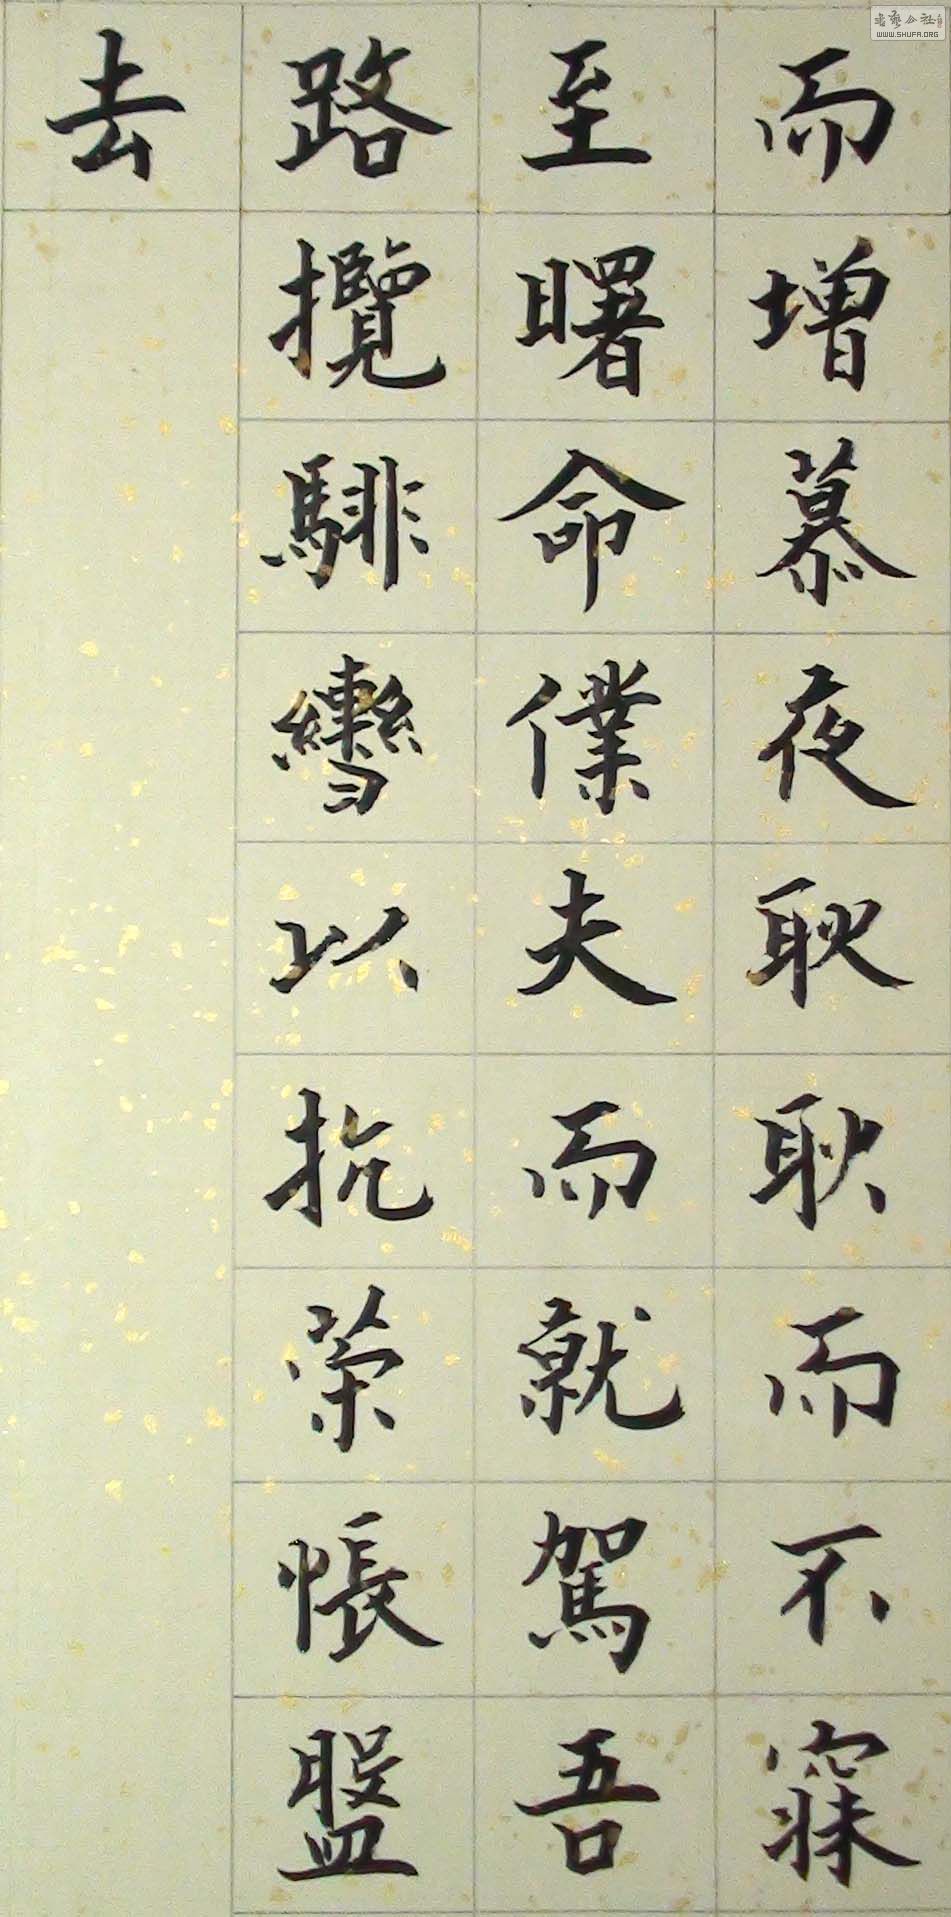 而增慕夜耿耿而不寐
至曙命僕夫而就駕吾
路攬騑轡以抗策悵盤
去
書藝公社
WWW.SHUFA.ORG